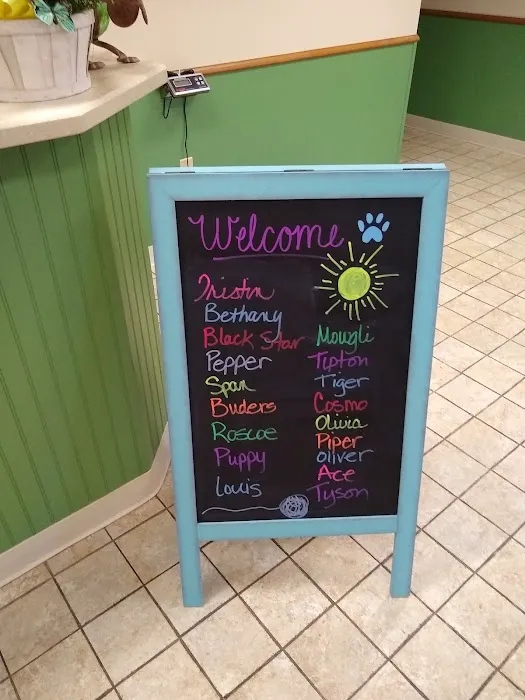 Welcome
Tristin
Bethany
Black Star
Pepper
Span
Buders
Roscoe
Puppy
Louis
Mougli
Tipton
Tiger
Cosmo
Olivia
Piper
oliver
Ace
Tyson